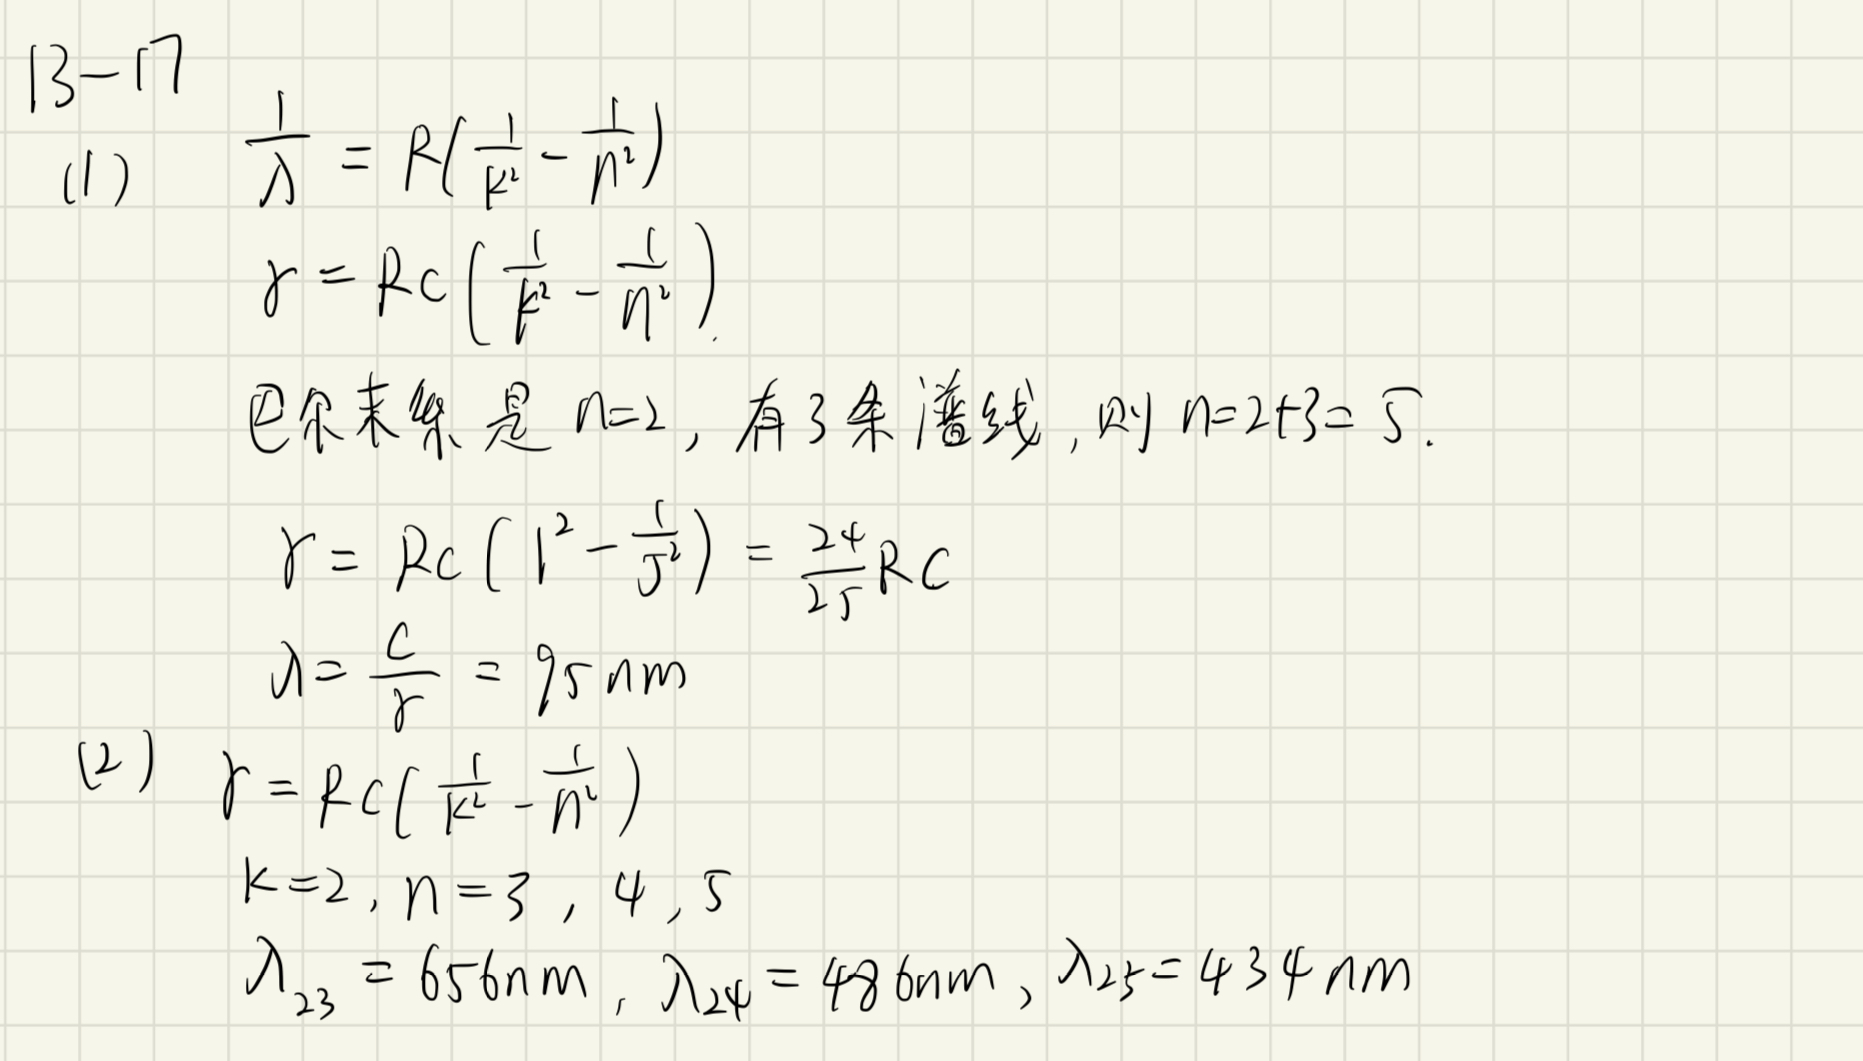 13-17
(1) 1/λ = R(1/k² - 1/n²)
γ = Rc(1/k² - 1/n²).
巴尔末系是 n=2, 有3条谱线, 则 n=2+3=5.
γ = Rc(1² - 1/5²) = 24/25 RC
λ = C/γ = 95nm
(2) γ = RC(1/k² - 1/n²)
k=2, n=3, 4, 5
λ₂₃ = 656nm, λ₂₄ = 486nm, λ₂₅ = 434nm